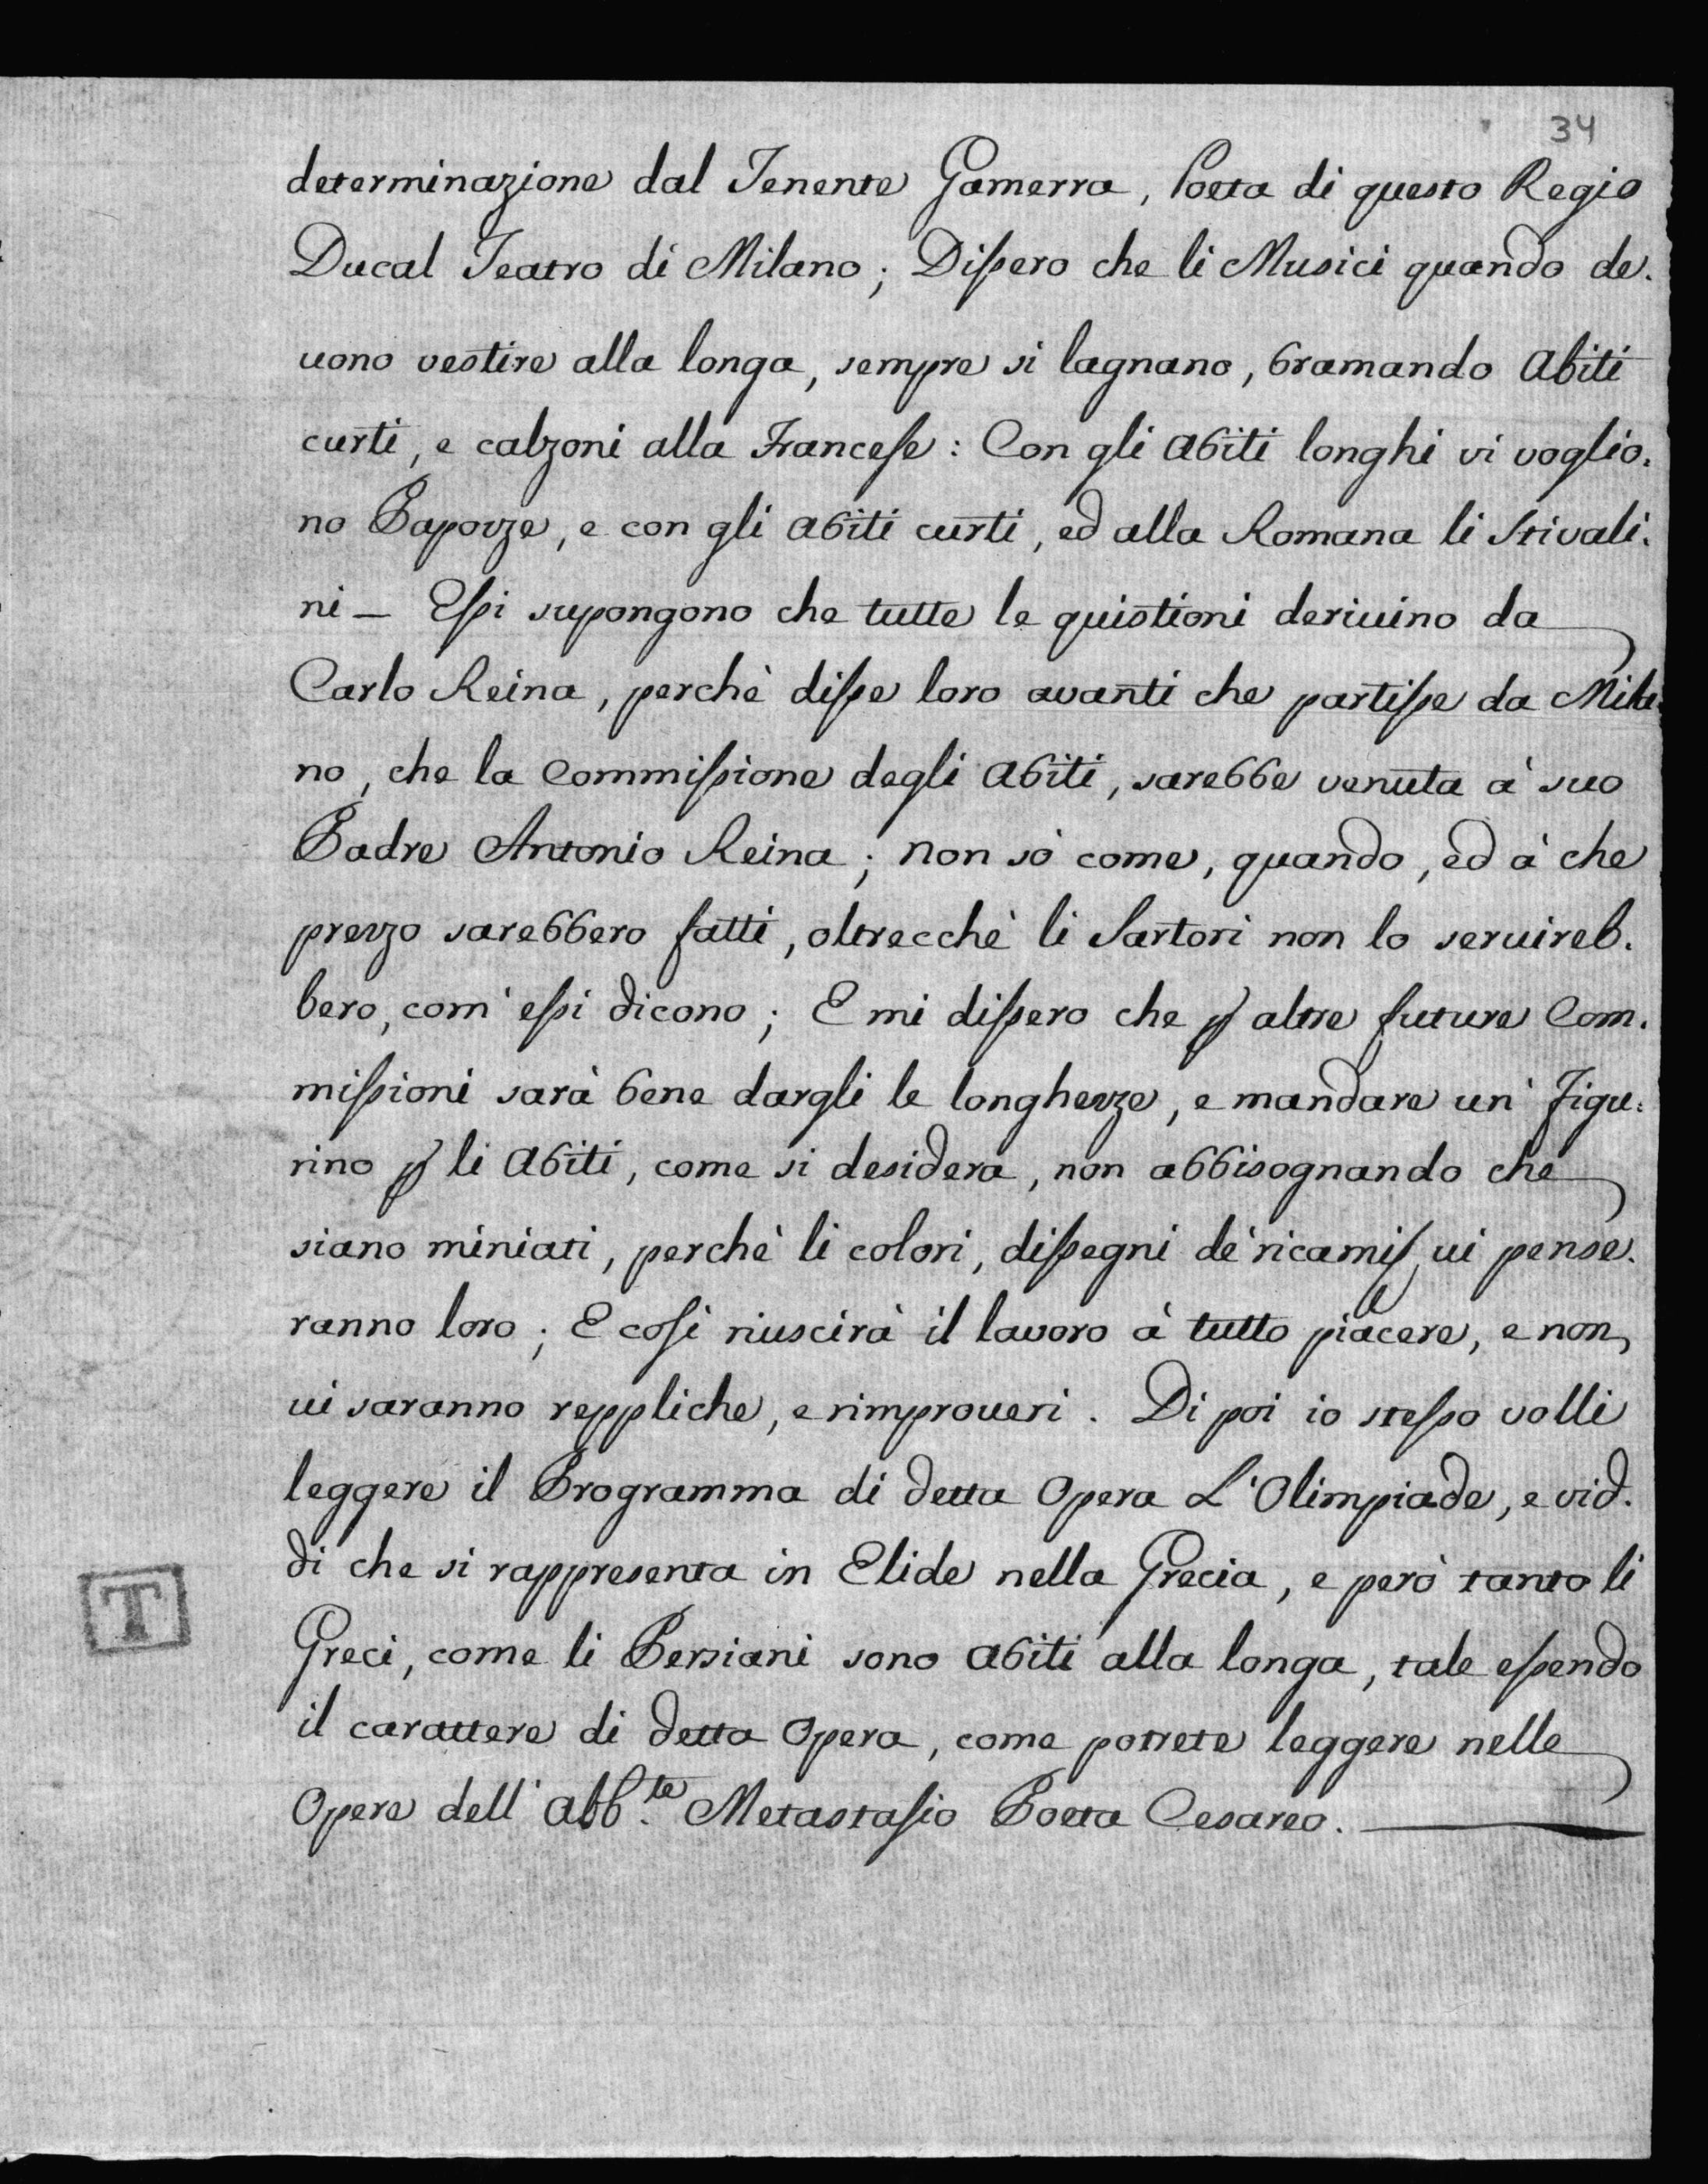 34
determinazione dal Tenente Gamerra, Poeta di questo Regio
Ducal Teatro di Milano; Dißero che li Musici quando de.
uono vestire alla longa, sempre si lagnano, bramando Abiti
curti, e calzoni alla Franceſe: Con gli Abiti longhi vi voglio.
no Papozze, e con gli abiti curti, ed alla Romana li Stivali.
ni – Eßi supongono che tutte le quistioni deriuino da
Carlo Reina, perchè diße loro avanti che partiße da Mila.
no, che la Commißione degli Abiti, sarebbe venuta à suo
Padre Antonio Reina; non sò come, quando, ed à che
prezzo sarebbero fatti, oltrecchè li Sartori non lo seruireb.
bero, com' eßi dicono; E mi dißero che ꝑ altre future Com.
mißioni sarà bene dargli le longhezze, e mandare un' Figu:
rino ꝑ li Abiti, come si desidera, non abbisognando che
siano miniati, perchè li colori, dißegni de' ricami, ui pense.
ranno loro; E coſì riuscirà il lavoro à tutto piacere, e non
ui saranno reppliche, e rimproueri. Di poi io steßo volli
leggere il Programma di detta Opera L'Olimpiade, e vid.
di che si rappresenta in Elide nella Grecia, e però tanto li
Greci, come li Persiani sono abiti alla longa, tale eßendo
il carattere di detta Opera, come potrete leggere nelle
Opere dell' Abb.te Metastaſio Poeta Cesareo.
T